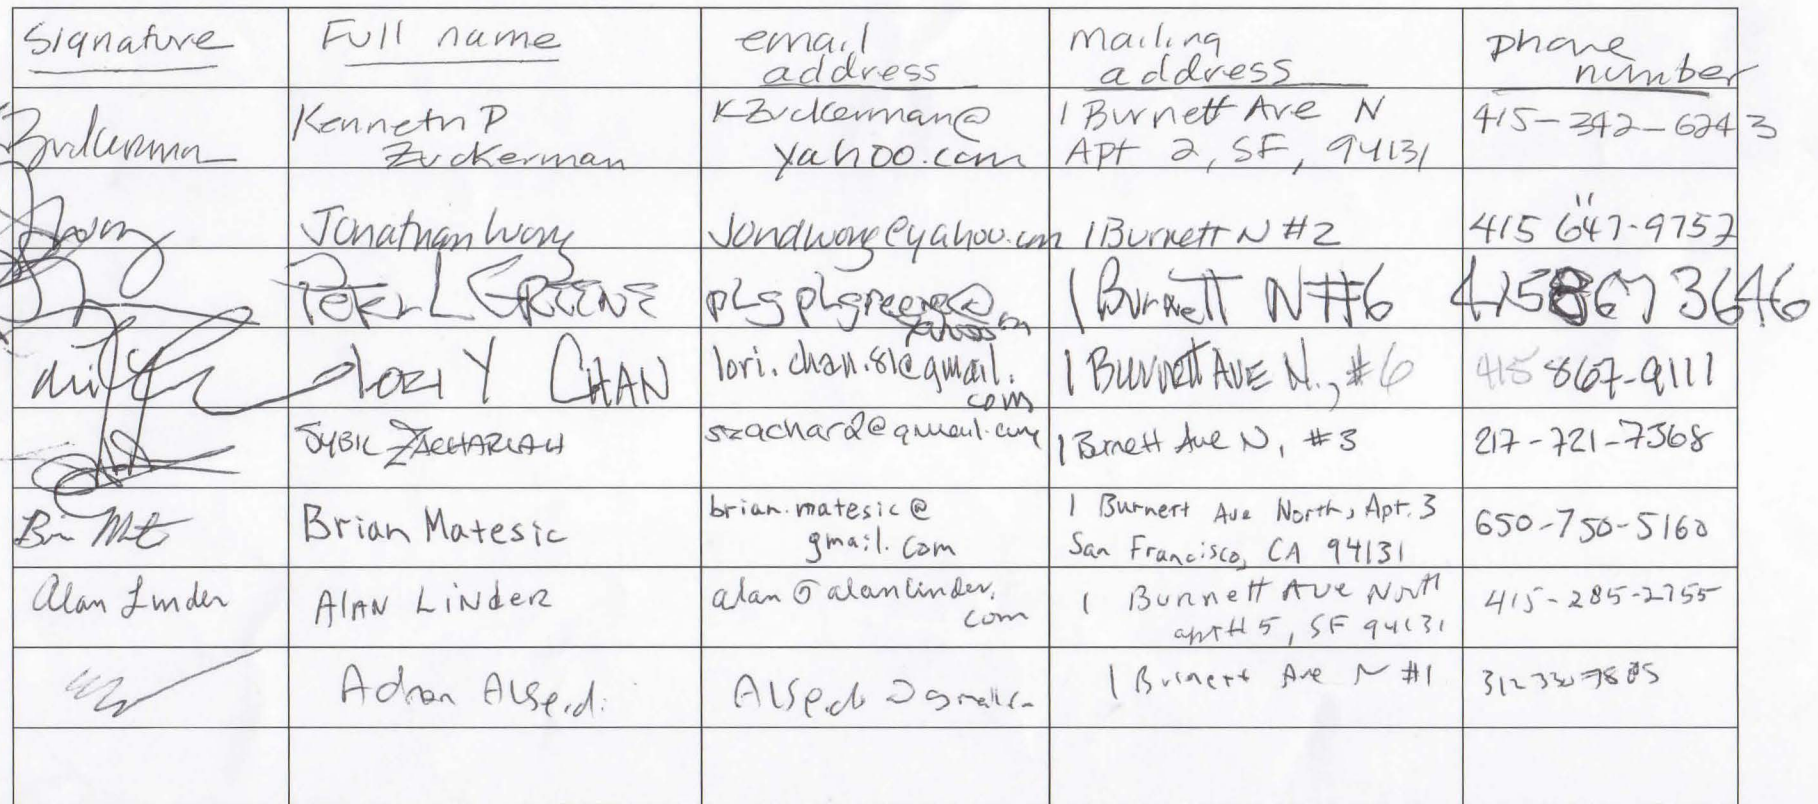 Signature Full name email address mailing address phone number
Zuckerman Kenneth P Zuckerman KZuckerman@yahoo.com 1 Burnett Ave N Apt 2, SF, 94131 415-342-6243
Jonathan Wong Jondwong@yahoo.com 1 Burnett N #2 415 647-9757
Peter L GREENE 1 Burnett N #6 415 867 3646
LORI Y CHAN lori.chan.81@gmail.com 1 Burnett AVE N., #6 415 867-9111
SYBIL ZACHARIAH szachar2@gmail.com 1 Burnett Ave N, #3 217-721-7368
Brian Matesic brian.matesic@gmail.com 1 Burnett Ave North, Apt. 3 San Francisco, CA 94131 650-750-5160
Alan Linder ALAN LINDER alan@alanlinder.com 1 Burnett Ave North apt #5, SF 94131 415-285-2755
1 Burnett Ave N #1